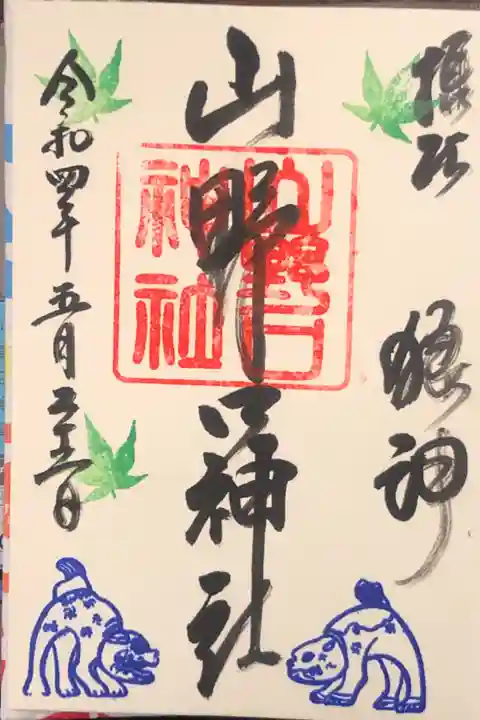 摂社 狼神
山野口神社
山野口
神社
令和四年五月